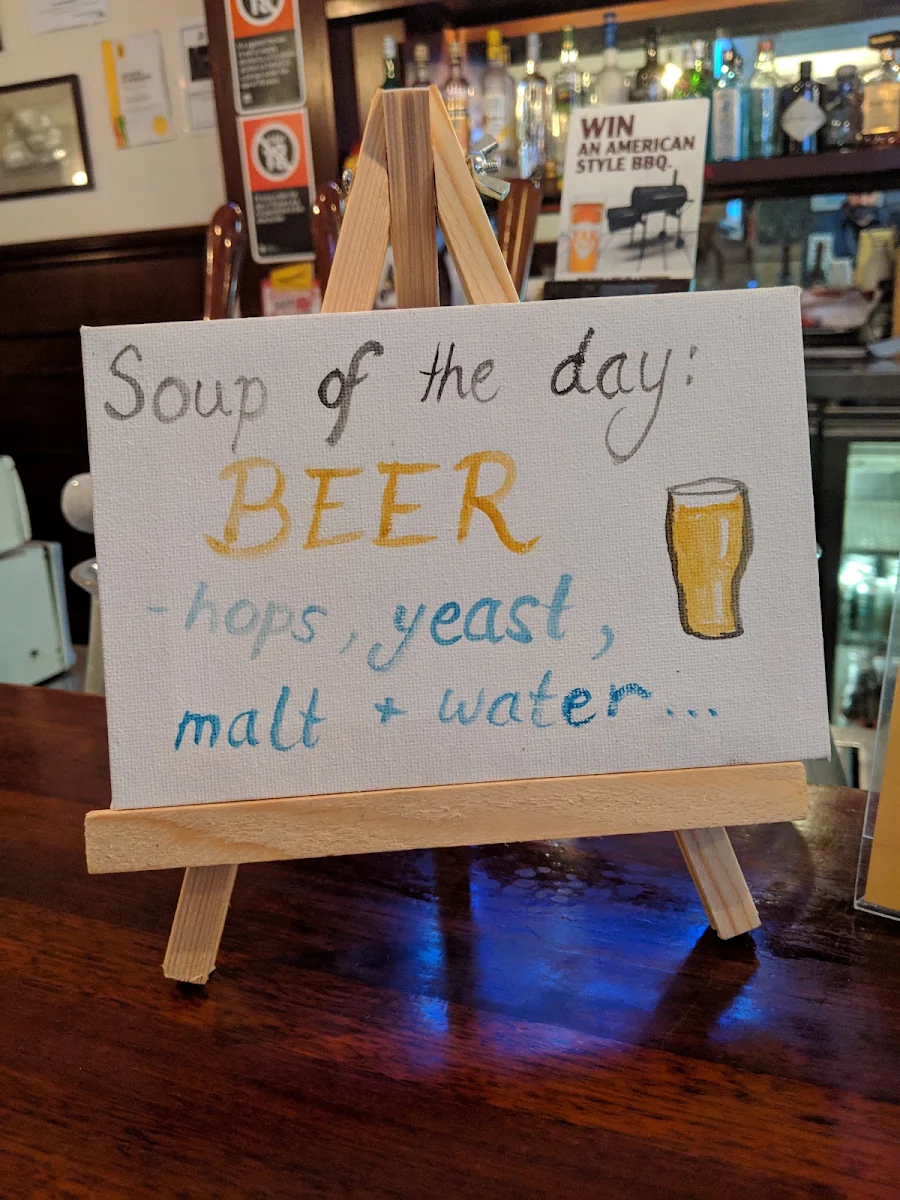 WIN
AN AMERICAN
STYLE BBQ.
Soup of the day:
BEER
-hops, yeast,
malt + water...